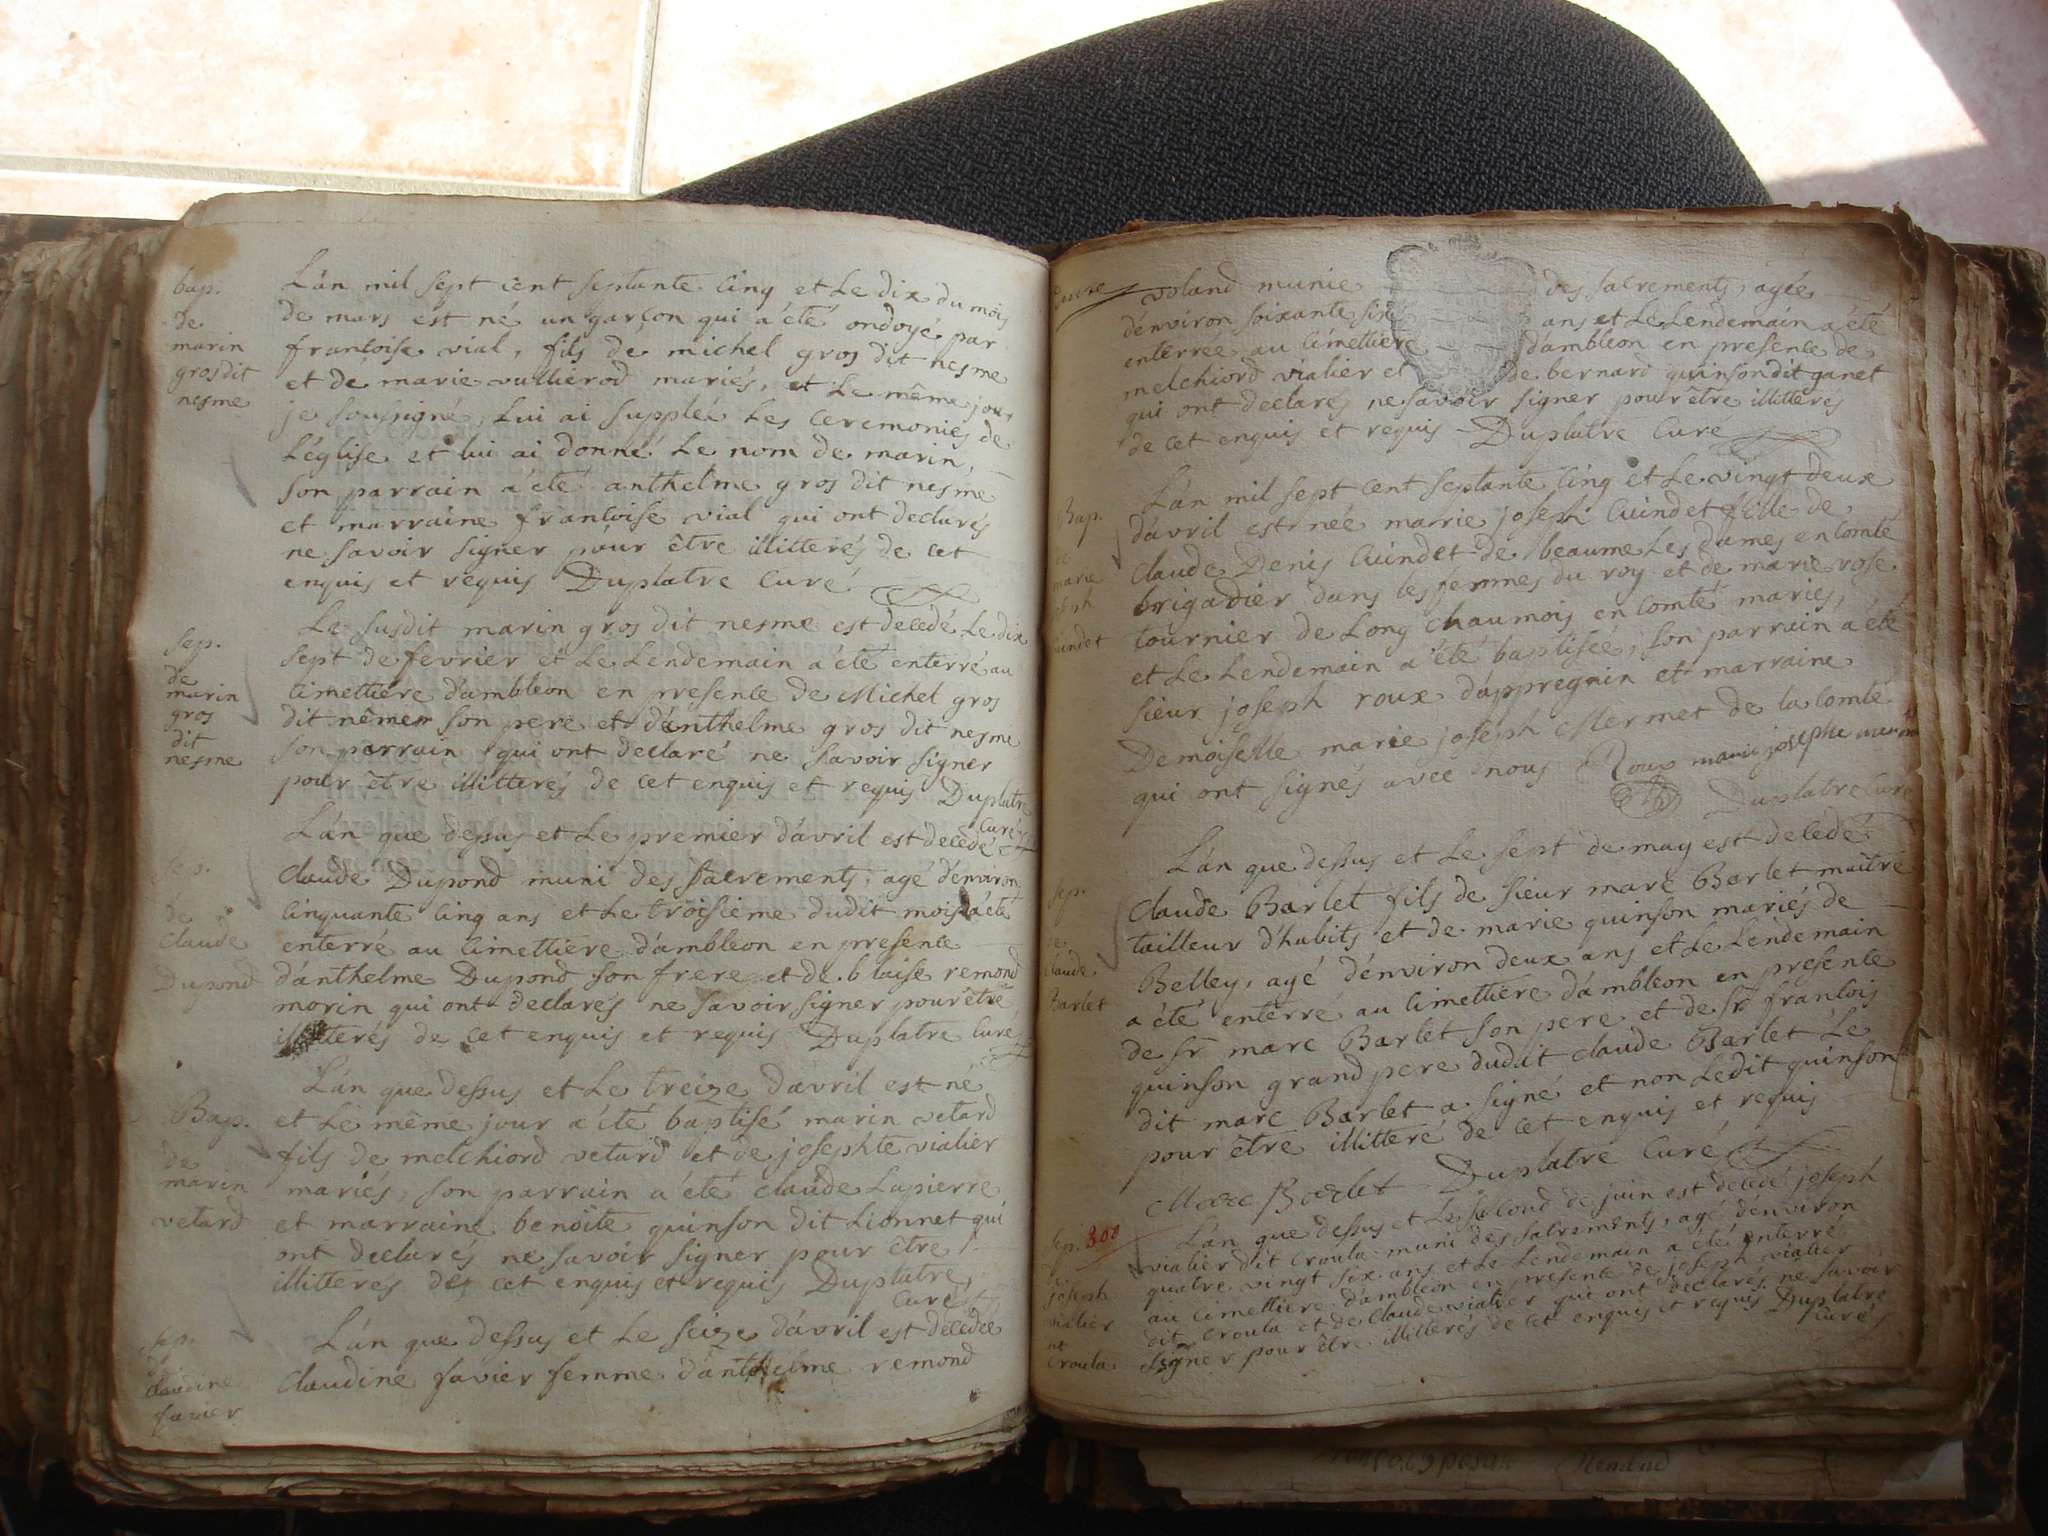 bap.
de
marin
gros dit
nesme
L'an mil sept cent septante cinq et le dix du mois
de mars est né un garçon qui a été ondoyé par
francoise vial, fils de michel gros dit nesme
et de marie vullierod mariés, et le même jour
je soussigné, lui ai supplée les ceremonies de
l'église et lui ai donné le nom de marin,
son parrain a été anthelme gros dit nesme
et marraine francoise vial qui ont declarés
ne savoir signer pour être illitterés de cet
enquis et requis Duplatre Curé
sep.
de
marin
gros
dit
nesme
Le susdit marin gros dit nesme est decedé le dix
sept de fevrier et le lendemain a été enterré au
cimettiére d'ambleon en presence de Michel gros
dit nêmer son pere et d'enthelme gros dit nesme
son parrain qui ont declaré ne savoir signer
pour être illitterés de cet enquis et requis Duplatre
Curé
sep.
de
claude
Dupond
L'an que dessus et le premier d'avril est decedé
Claude Dupond muni des sacrements, agé d'environ
cinquante cinq ans et le troisieme dudit mois a été
enterré au cimettiere d'ambleon en presence
d'anthelme Dupond son frere et de blaise remond
morin qui ont declarés ne savoir signer pour être
illitterés de cet enquis et requis Duplatre Curé
Bap.
de
marin
vetard
L'an que dessus et le treize d'avril est né
et le même jour a été baptisé marin vetard
fils de melchiord vetard et de josephte vialier
mariés, son parrain a été claude Lapierre
et marraine benoite quinson dit Lionnet qui
ont declarés ne savoir signer pour être
illitteres de cet enquis et requis Duplatre
Curé
sep.
de
claudine
favier
L'an que dessus et le seize d'avril est decedée
Claudine favier femme d'anthelme remond
voland munie des sacrements, agée
d'environ soixante six ans et le lendemain a été
enterrée au cimettiere d'ambléon en presence de
melchiord vialier et de bernard quinson dit ganet
qui ont declarés ne savoir signer pour etre illitterés
de cet enquis et requis Duplatre Curé
Bap.
de
marie
joseph
Cuindet
L'an mil sept cent septante cinq et le vingt deux
d'avril est née marie joseph Cuindet fille de
claude Denis Cuindet de beaume les dames en comté
brigadier dans les fermes du roy et de marie rose
tournier de Long chaumois en comté mariés,
et le lendemain a été baptisée, son parrain a été
sieur joseph roux d'appregnin et marraine
Demoiselle marie joseph Mermet de la comté
qui ont signés avec nous Roux marie josephe
Duplatre Curé
sep.
de
claude
Barlet
L'an que dessus et le sept de may est decedé
claude Barlet fils de sieur marc Barlet maitre
tailleur d'habits et de marie quinson mariés de
Belley, agé d'environ deux ans et le lendemain
a été enterré au cimettiere d'ambleon en presence
de sr marc Barlet son pere et de sr francois
quinson grand pere dudit claude Barlet le
dit marc Barlet a signé et non ledit quinson
pour être illitteré de cet enquis et requis
Marc Barlet Duplatre Curé
sep. 300
de
joseph
vialier
dit
croula
L'an que dessus et le second de juin est decedé joseph
vialier dit croula muni des sacrements, agé d'environ
quatre vingt six ans et le lendemain a été enterré
au cimettiere d'ambleon en presence de joseph vialier
dit croula et de Claude vialier qui ont declarés ne savoir
signer pour être illitterés de cet enquis et requis Duplatre
Curé